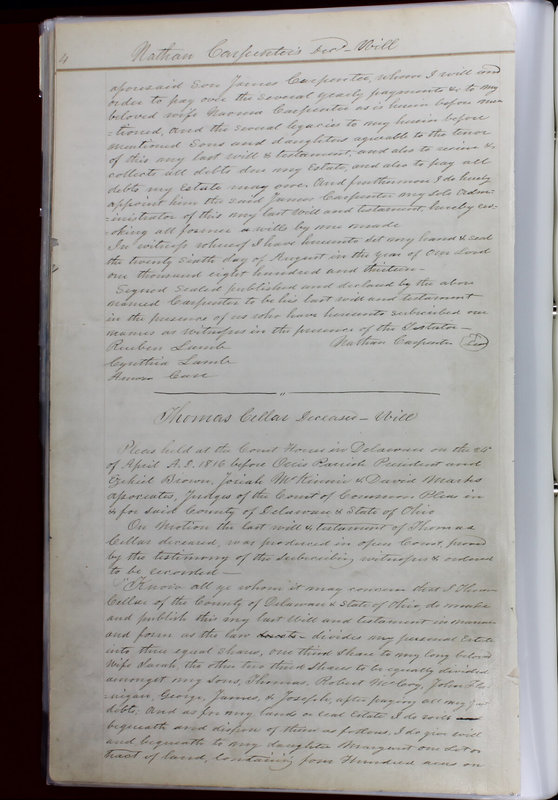 4
Nathan Carpenter's Decd - Will
aforesaid Son James Carpenter, whom I will and
order to pay over the several yearly payments &c to my
beloved wife Naomia Carpenter as is herein before men
-tioned, and the several legacies to my herein before
mentioned Sons and daughters agreeable to the tenor
of this my last will & testament, and also to receive &
collect all debts due my Estate, and also to pay all
debts my Estate may owe. And furthermore I do hereby
appoint him the said James Carpenter my sole Admin-
-inistrator of this my last Will and testament, hereby rev-
-oking all former wills by me made
In witness whereof I have hereunto Set my hand & seal
the twenty Sixth day of August in the year of Our Lord
one thousand eight hundred and thirteen -
Signed Sealed published and declared by the above
named Carpenter to be his last will and testament
in the presence of us who have hereunto subscribed our
names as witnesses in the presence of the Testator -
Reuben Lamb Nathan Carpenter Seal
Cynthia Lamb
Case
Thomas Cellar Deceased - Will
Pleas held at the Court House in Delaware on the 24
of April A.D. 1816 before Parrish President and
Ezekiel Brown, Josiah McKinnie & David Marks
Judges of the Court of Common Pleas in
& for said County of Delaware & State of Ohio
On Motion the last will & testament of Thomas
Cellar deceased, was produced in open Court, proved
by the testimony of the subscribing witnesses & ordered
to be recorded -
"Know all ye whom it may concern that I Thomas
Cellar of the County of Delaware & State of Ohio, do make
and publish this my last Will and testament in manner
and form as the law divides my personal Estate
into three equal shares, one third Share to my long beloved
Wife Sarah, the other two third Shares to be equally divided
amongst my Sons, Thomas, Robert McCoy, John Fla
-nigan, George, James, & Joseph, after paying all my just
debts. And as for my lands or real Estate I do
bequeath and dispose of them as follows, I do give will
and bequeath to my daughter Margaret one Lot or
tract of land, containing four Hundred acres on